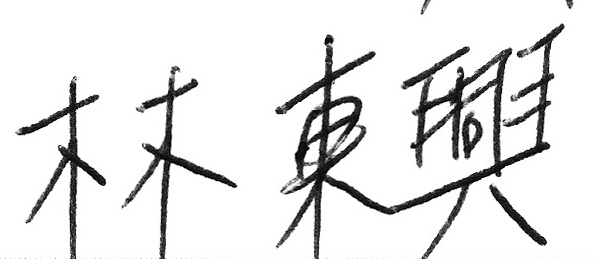 林東興